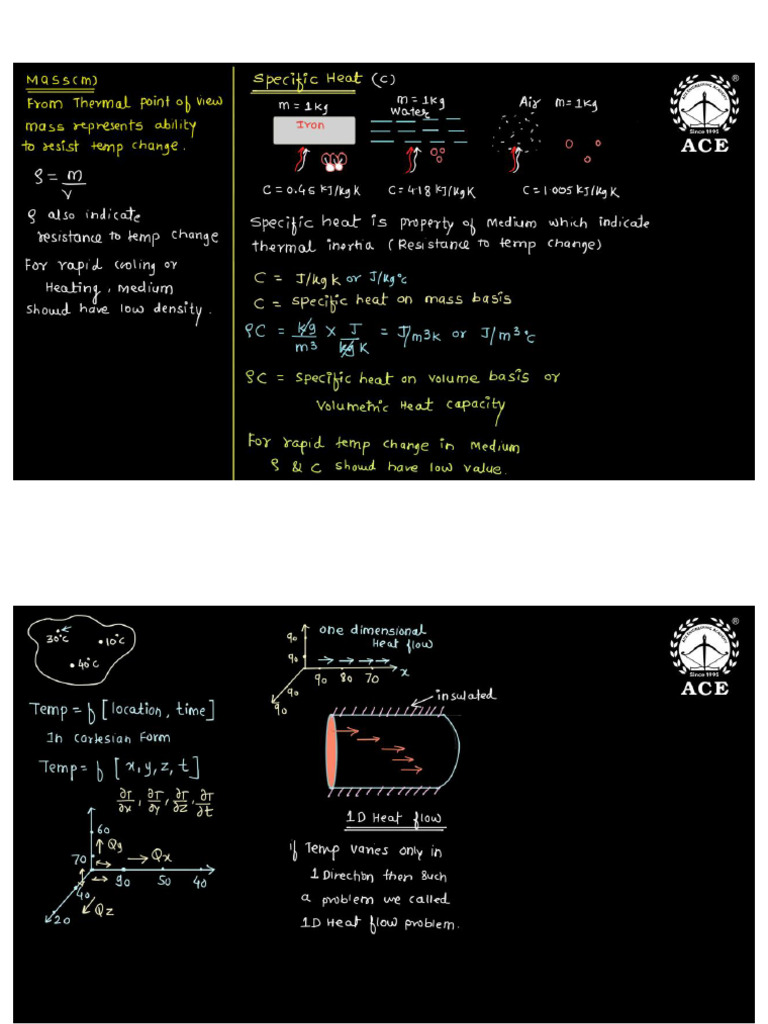 Mass(m)
From Thermal point of view
mass represents ability
to resist temp change.
ρ = m
v
ρ also indicate
resistance to temp change
For rapid cooling or
Heating, medium
should have low density.
Specific Heat (c)
m = 1kg
m = 1kg
Water
Air m=1kg
Iron
C = 0.45 KJ/kgK
C = 4.18 KJ/kgK
C = 1.005 KJ/kgK
Specific heat is property of medium which indicate
thermal inertia (Resistance to temp change)
C = J/kgK or J/kg°c
C = specific heat on mass basis
ρC = kg/m3 × J/kgK = J/m3K or J/m3°c
ρC = Specific heat on volume basis or
Volumetric Heat capacity
For rapid temp change in medium
ρ & C should have low value.
ACE ENGINEERING ACADEMY
®
Since 1995
ACE
30°c
10°c
40°c
Temp = f [location, time]
In cartesian form
Temp = f [x, y, z, t]
∂T/∂x, ∂T/∂y, ∂T/∂z, ∂T/∂t
60
Qy
70
Qx
90 50 40
40
Qz
20
one dimensional
Heat flow
90
90
90 80 70 x
90
90
insulated
1D Heat flow
if Temp varies only in
1 Direction then such
a problem we called
1D Heat flow problem.
ACE ENGINEERING ACADEMY
®
Since 1995
ACE